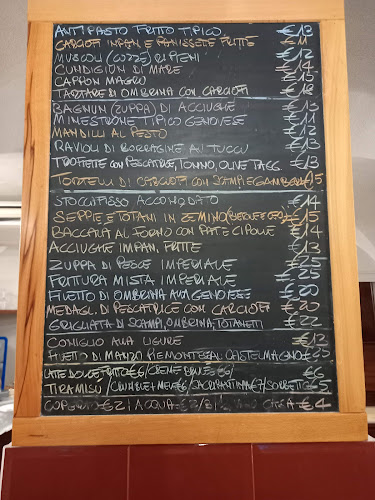 ANTIPASTO FRITTO TIPICO €13
CARCIOFI IMPAN. E PANISSETE FRITTE €11
MUSCOLI (COZZE) RIPIENI €12
CUNDIGIUN DI MARE €14
CAPPON MAGRO €15
TARTARE DI OMBRINA CON CARCIOFI €18
BAGNUN (ZUPPA) DI ACCIUGHE €13
MINESTRONE TIPICO GENOVESE €11
MANDILLI AL PESTO €12
RAVIOLI DI BORRAGINE AU TUCCU €13
TROFIETTE CON PESCATRICE, TONNO, OLIVE TAGG. €13
TORTELLI DI CARCIOFI CON SCAMPI E GAMBERI €15
STOCCAFISSO ACCOMODATO €14
SEPPIE E TOTANI IN ZEMINO (BIETOLE E CECI) €15
BACCALÀ AL FORNO CON PAT. E CIPOLLE €14
ACCIUGHE IMPAN. FRITTE €13
ZUPPA DI PESCE IMPERIALE €25
FRITTURA MISTA IMPERIALE €25
FILETTO DI OMBRINA ALLA GENOVESE €20
MEDAGL. DI PESCATRICE CON CARCIOFI €20
GRIGLIATA DI SCAMPI, OMBRINA, TOTANETTI €22
CONIGLIO ALLA LIGURE €12
FILETTO DI MANZO PIEMONTESE AL CASTELMAGNO €25
LATTE DOLCE FRITTO €6 / CREME BRULEE €6 / €6
TIRAMISÙ / CRUMBLE + MELE €6 / SACRIPANTINA €7 / SORBETTO €5
COPERTO €2 | ACQUA €2/3 | €4